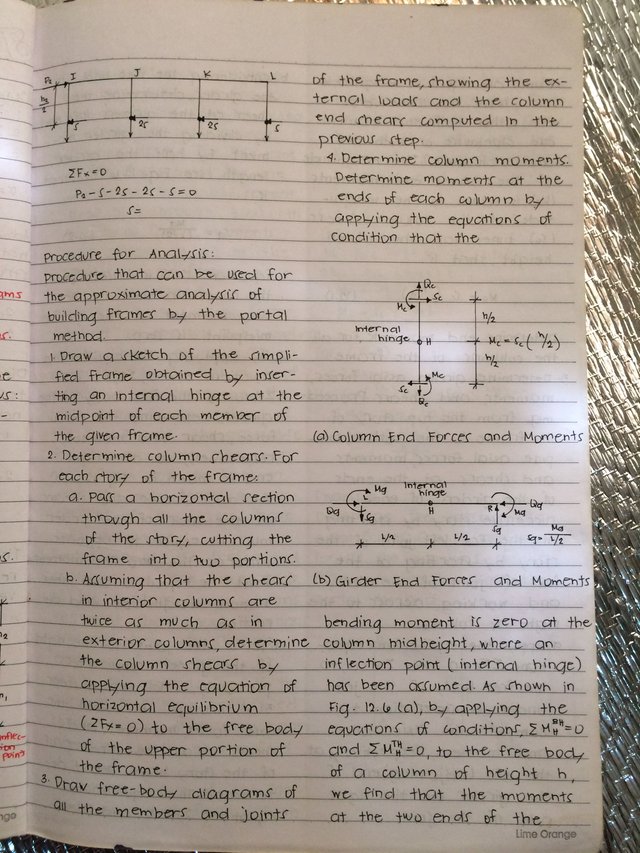 P2
I
J
K
L
h2/2
S
2S
2S
S
ΣFx=0
P2-S-2S-2S-S=0
S=
Procedure for Analysis:
Procedure that can be used for
the approximate analysis of
building frames by the portal
method.
1. Draw a sketch of the simpli-
fied frame obtained by inser-
ting an internal hinge at the
midpoint of each member of
the given frame.
2. Determine column shears. For
each story of the frame:
a. Pass a horizontal section
through all the columns
of the story, cutting the
frame into two portions.
b. Assuming that the shears
in interior columns are
twice as much as in
exterior columns, determine
the column shears by
applying the equation of
horizontal equilibrium
(ΣFx=0) to the free body
of the upper portion of
the frame.
3. Draw free-body diagrams of
all the members and joints
of the frame, showing the ex-
ternal loads and the column
end shears computed in the
previous step.
4. Determine column moments.
Determine moments at the
ends of each column by
applying the equations of
condition that the
Qc
Sc
Mc
h/2
Internal
hinge
H
Mc = Sc (h/2)
h/2
Mc
Sc
Qc
(a) Column End Forces and Moments
Mg
Internal
hinge
Qg
L
H
R
Qg
Sg
Mg
Sg
L/2
L/2
Sg= Mg/L/2
(b) Girder End Forces and Moments
bending moment is zero at the
column midheight, where an
inflection point (internal hinge)
has been assumed. As shown in
Fig. 12.6 (a), by applying the
equations of conditions, ΣM_H^BH=0
and ΣM_H^TH=0, to the free body
of a column of height h,
we find that the moments
at the two ends of the
Lime Orange